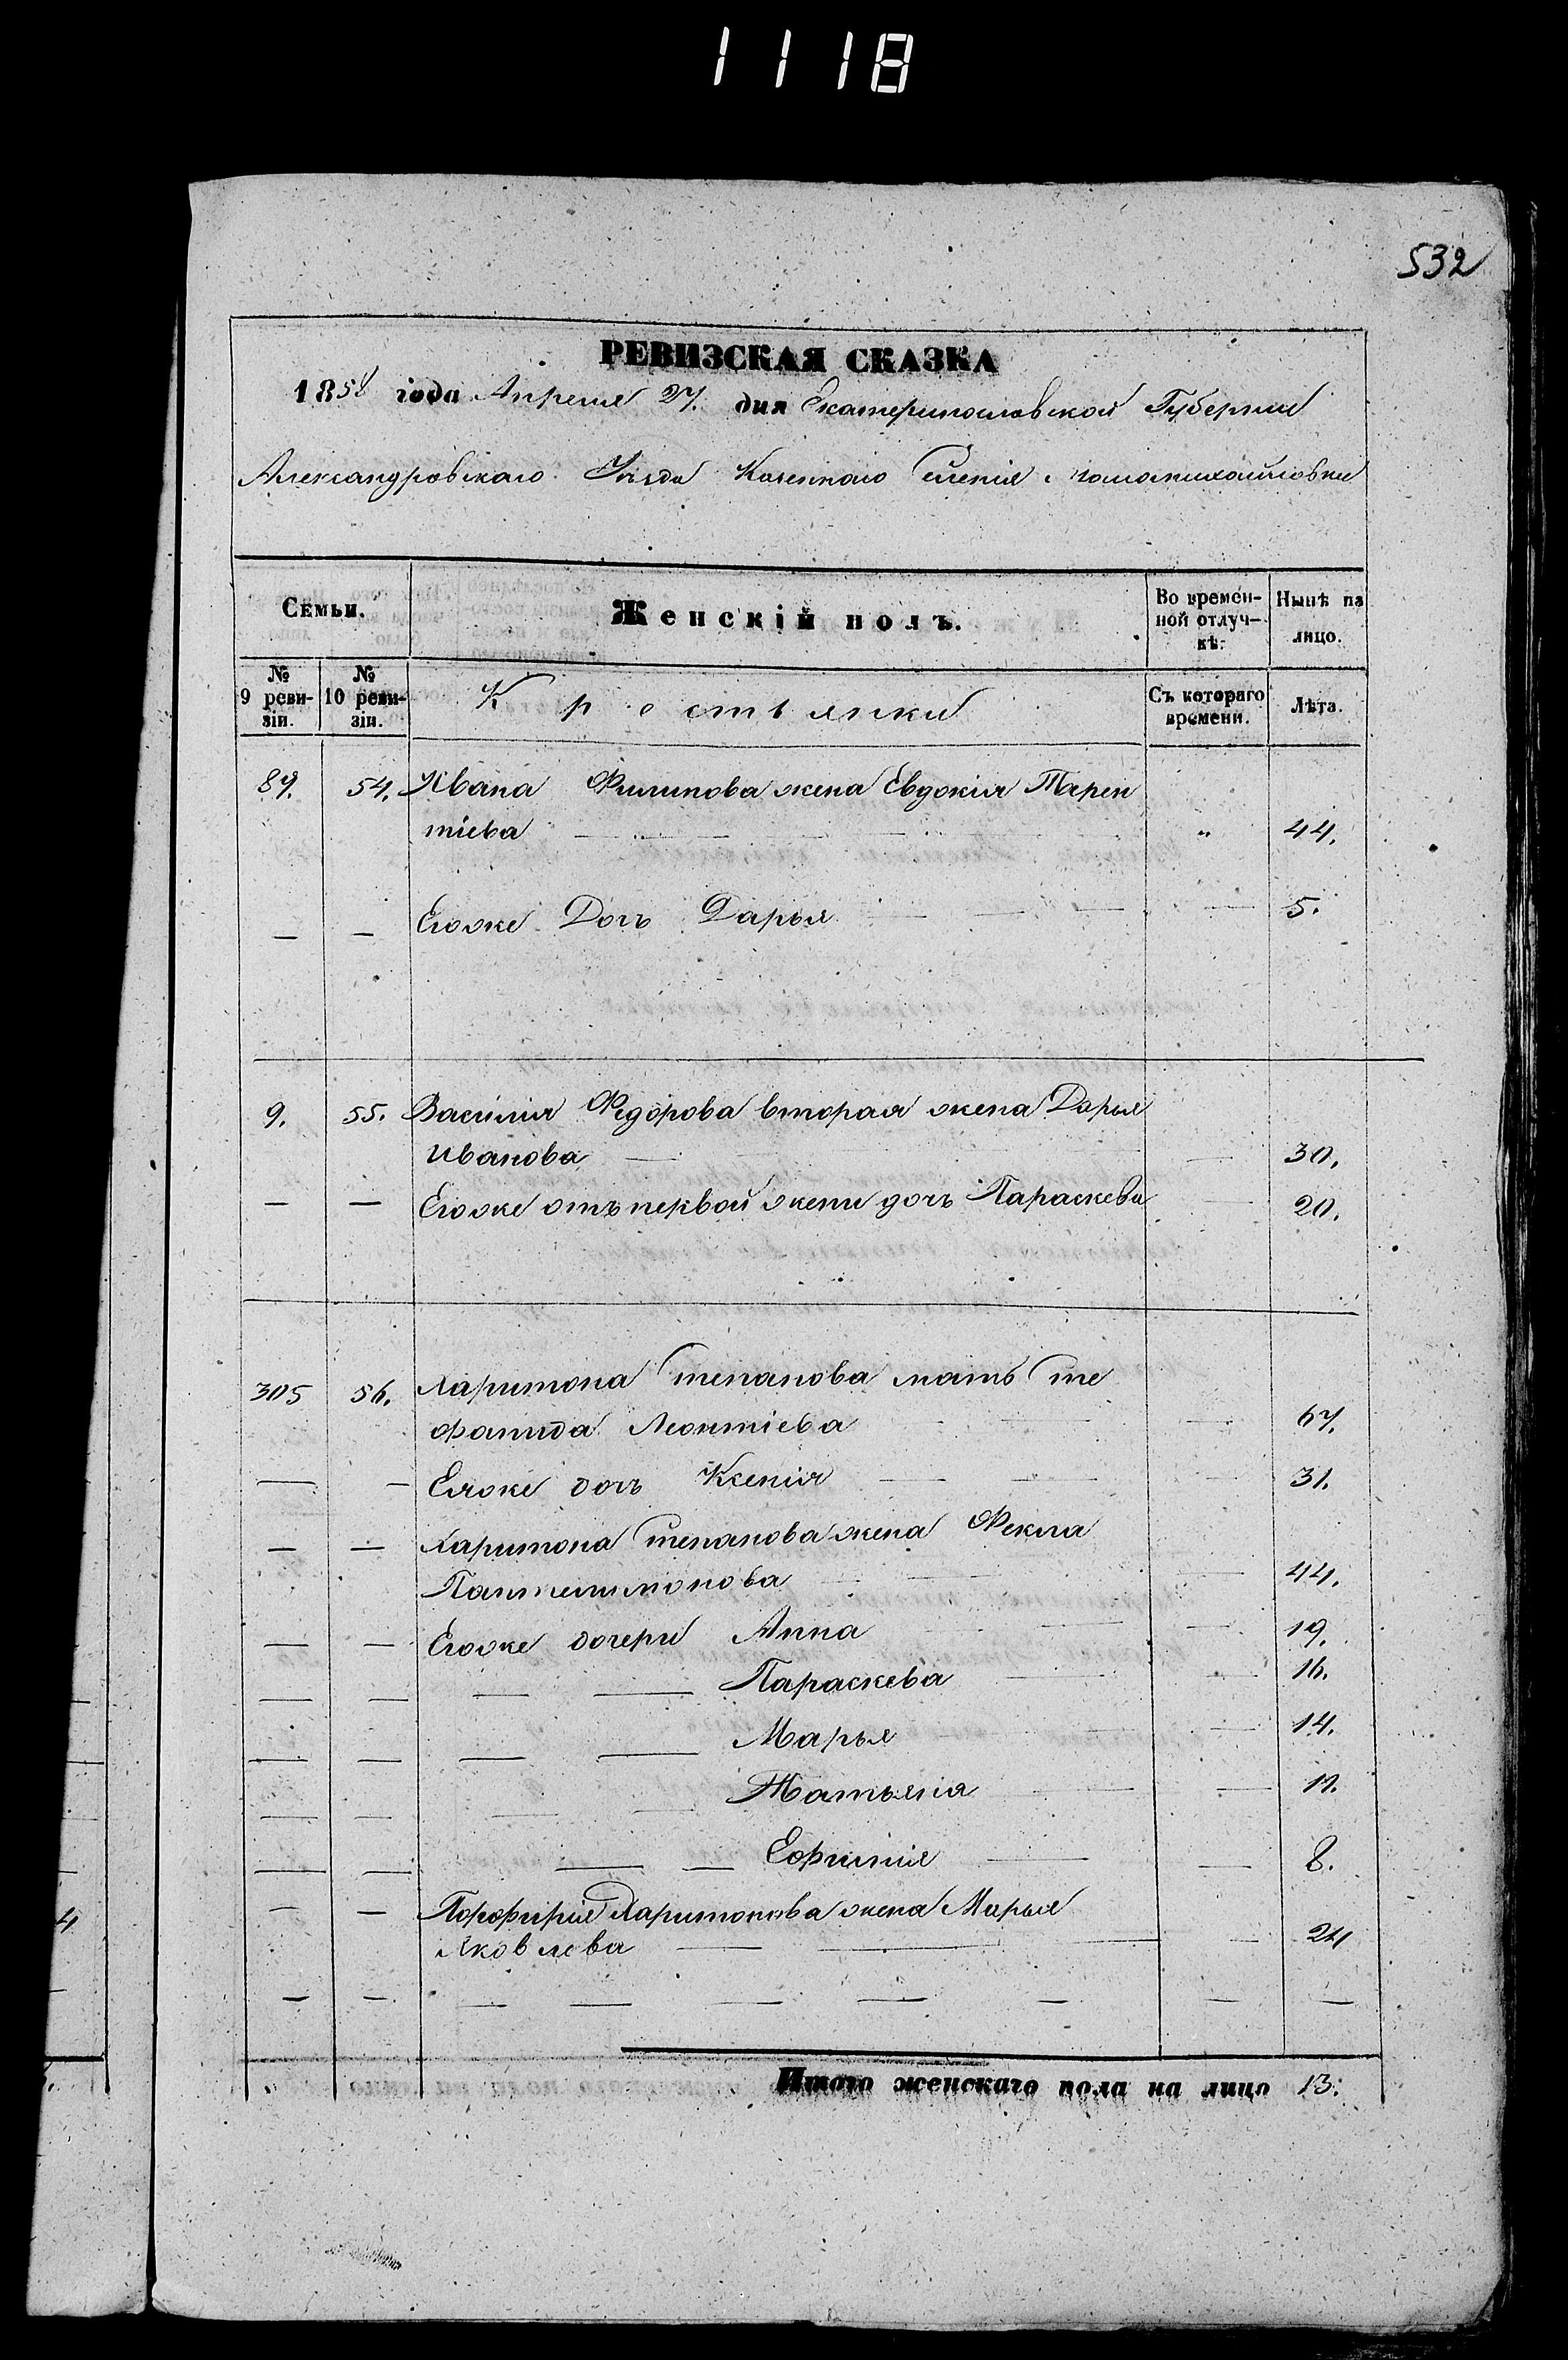 1118
532
РЕВИЗСКАЯ СКАЗКА
1858 года Апреля 27. дня Екатеринославской Губернии
Александровскаго Уѣзда Казеннаго Селенія Новомихайловки
Семьи. Женскій полъ. Во времен- Нынѣ на
ной отлуч- лицо.
кѣ.
№ № Крестьянки Съ котораго Лѣта.
9 реви- 10 реви- времени.
зіи. зіи.
87. 54. Ивана Филипова жена Евдокія Терен
тіева — — — — " 44.
— — Егоже Дочь Дарья — — — — 5.
9. 55. Василия Федорова вторая жена Дарья
Иванова — — 30.
— — Егоже отъ первой жены дочь Параскева — 20.
305 56. Харитона Степанова мать Сте
фанида Леонтіева — — — 67.
— — Еяже дочь Ксенія — — — 31.
— — Харитона Степанова жена Фекла
Пантелимонова — — — 44.
— — Егоже дочери Анна — — — 19.
— — — — Параскева — — 16.
— — — — Марья — — 14.
— — — — Татьяна — — 11.
— — — — Ефимія — — 8.
— — Порфирия Харитонова жена Марья
Яковлева — — — — 24
— — — — — — — — —
Итого женскаго пола на лицо 13.
4